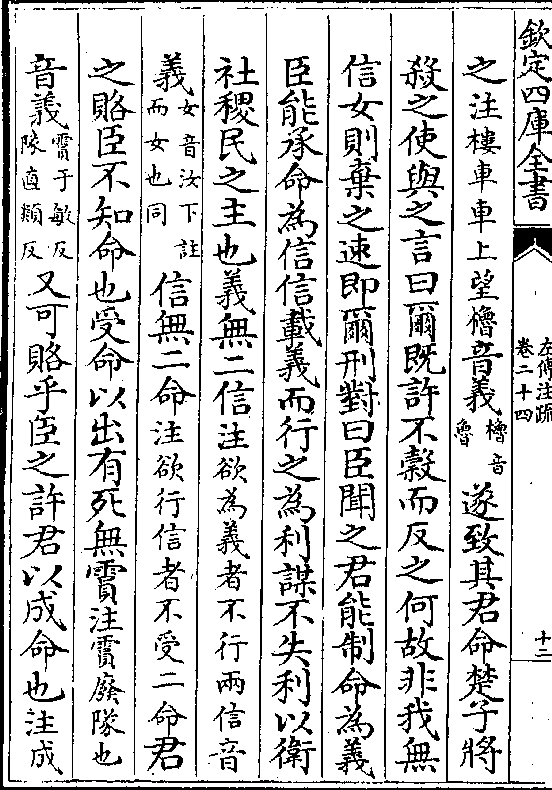 欽定四庫全書
左傳注疏
卷二十四
十二
之注樓車車上望櫓音義櫓音魯遂致其君命楚子將
殺之使與之言曰爾既許不穀而反之何故非我無
信女則棄之速即爾刑對曰臣聞之君能制命為義
臣能承命為信信載義而行之為利謀不失利以衛
社稷民之主也義無二信注欲為義者不行兩信音
義女音汝下註而女也同信無二命注欲行信者不受二命君
之賂臣不知命也受命以出有死無霣注霣廢隊也
音義霣于敏反隊直類反又可賂乎臣之許君以成命也注成